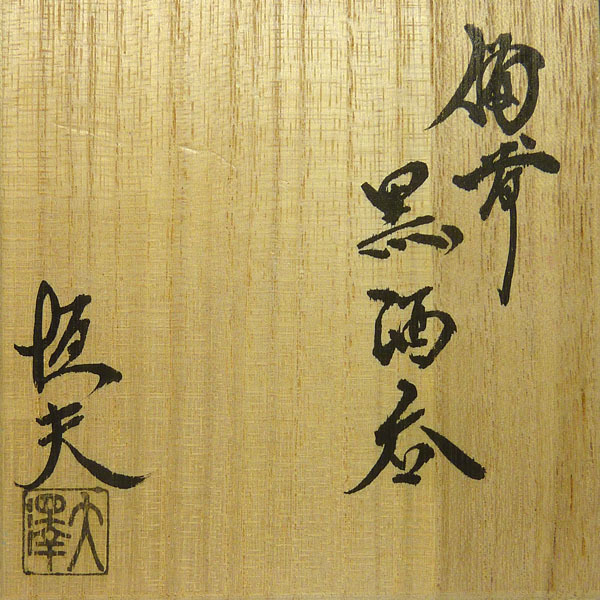 備前
黒酒呑
恒夫
大澤